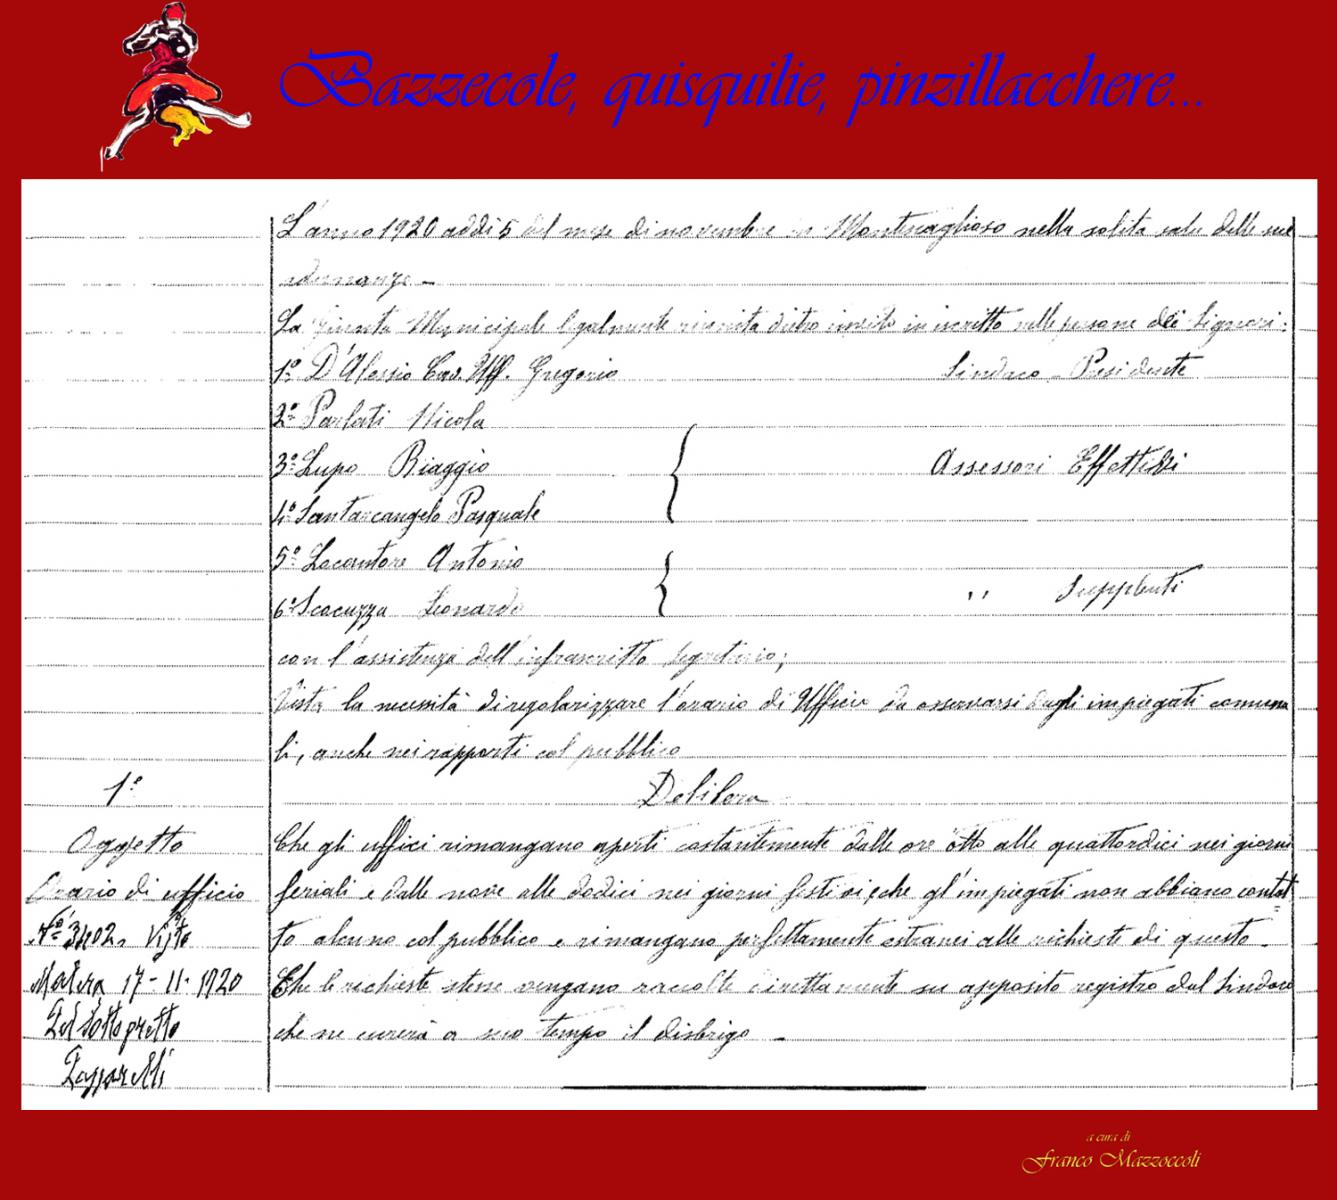 Bazzecole, quisquilie, pinzillacchere...
L'anno 1920 addi 5 del mese di novembre in Montescaglioso nella solita sala delle sue
adunanze -
La Giunta Municipale legalmente riunita dietro invito in iscritto nelle persone dei Signori:
1º D'Alessio Cav. Uff. Gregorio Sindaco - Presidente
2º Parlati Nicola
3º Lupo Biaggio Assessori Effettivi
4º Santarcangelo Pasquale
5º Locantore Antonio
6º Scocuzza Leonardo ,, Supplenti
con l'assistenza dell'infrascritto segretario;
Vista la necessità di regolarizzare l'orario di Ufficio da osservarsi dagli impiegati comuna
li, anche nei rapporti col pubblico
1º
Delibera
Oggetto
Orario di ufficio
Nº 3402. Visto
Matera 17-11-1920
Pel Sottoprefetto
Che gli uffici rimangano aperti costantemente dalle ore otto alle quattordici nei giorni
feriali e dalle nove alle dodici nei giorni festivi e che gl'impiegati non abbiano contat
to alcuno col pubblico e rimangano perfettamente estranei alle richieste di questo.
Che le richieste stesse vengano raccolte direttamente su apposito registro dal Sindaco
che ne curerà a suo tempo il disbrigo -
a cura di
Franco Mazzoccoli